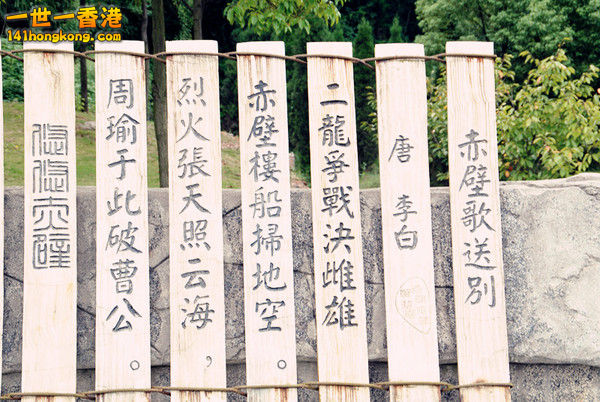 一世一香港
141hongkong.com
赤壁歌送別
唐 李白
二龍爭戰決雌雄
赤壁樓船掃地空。
烈火張天照云海,
周瑜于此破曹公。
悠悠赤壁